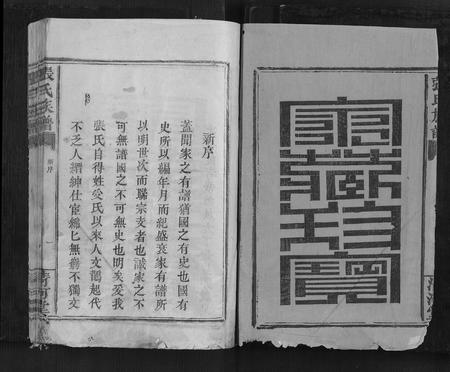 張氏族譜
家藏珍寶
新序
蓋聞家之有譜猶國之有史也國有
史所以編年月而紀盛衰家有譜所
以明世次而聯宗支者也誠家之不
可無譜國之不可無史也明矣爰我
張氏自得姓受氏以來人文鵲起代
不乏人縉紳仕宦雖匕無窮不獨文
張氏族譜
新序
清河堂